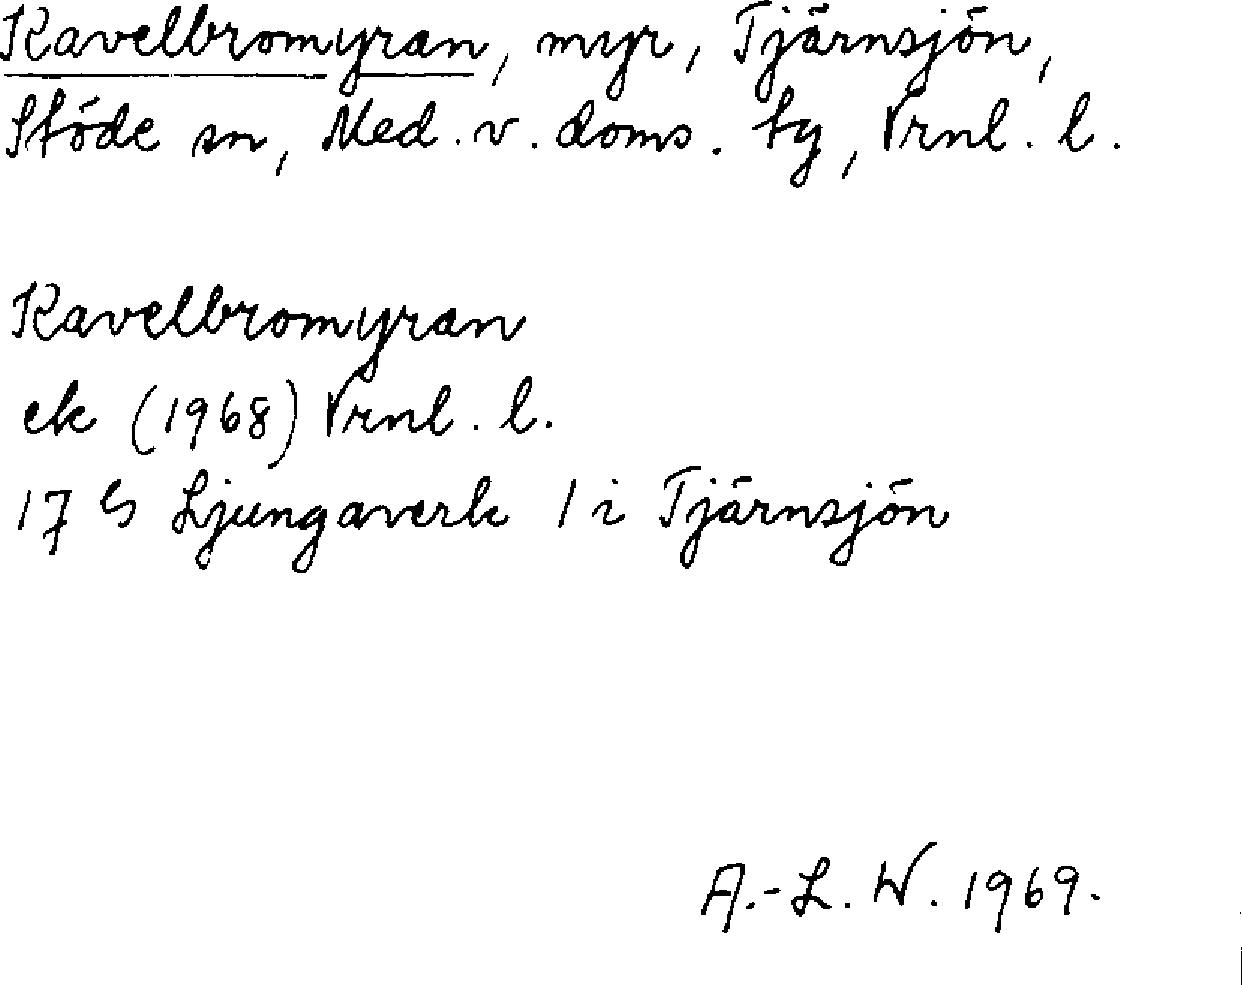 Kavelbromyran, myr, Tjärnsjön,
Stöde sn, Med. v. doms. tg, Vrnl. l.
Kavelbromyran
ek (1968) Vrnl. l.
17 G Ljungaverk 1 i Tjärnsjön
A.-L. W. 1969.